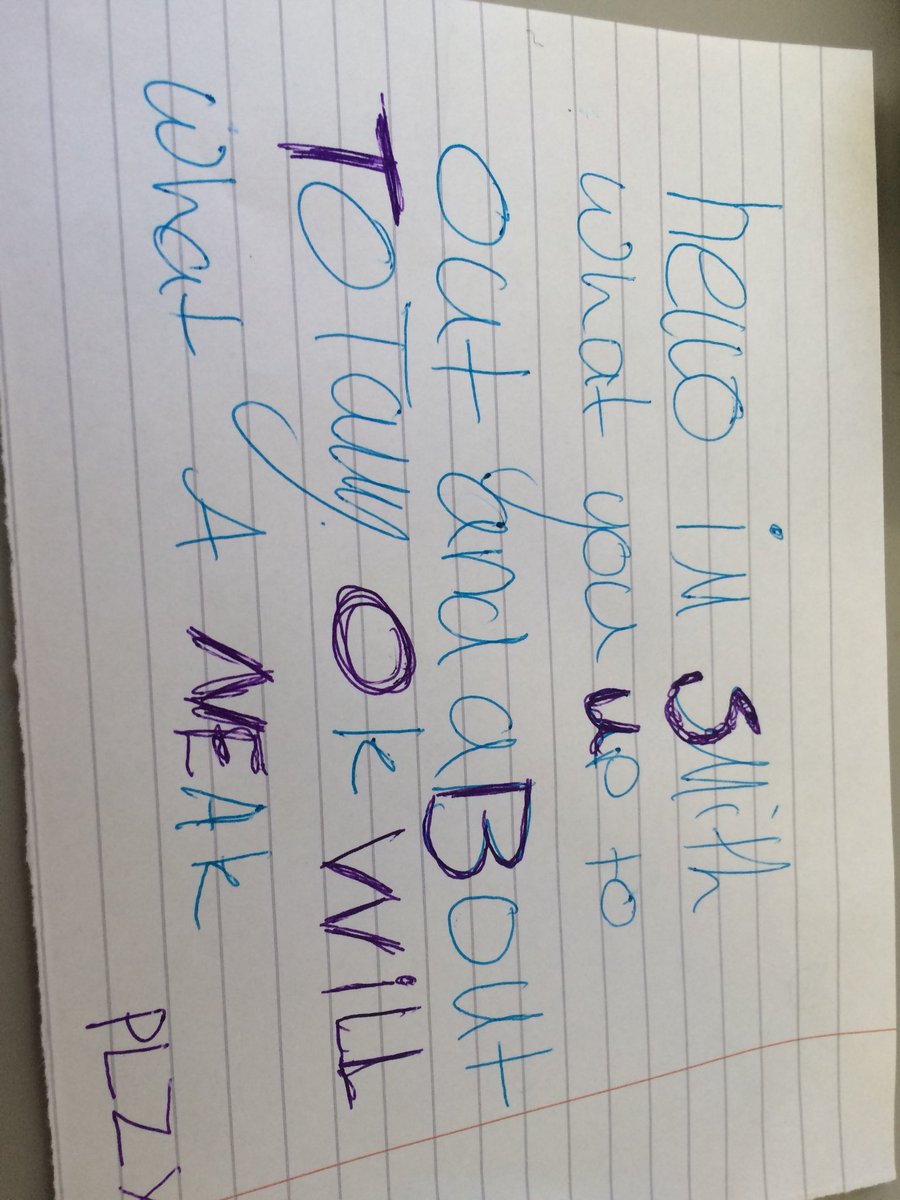 hello iM SMith
what you up to
Out and aBout
TOTally Ok WiLL
what A NEAK
PLZY